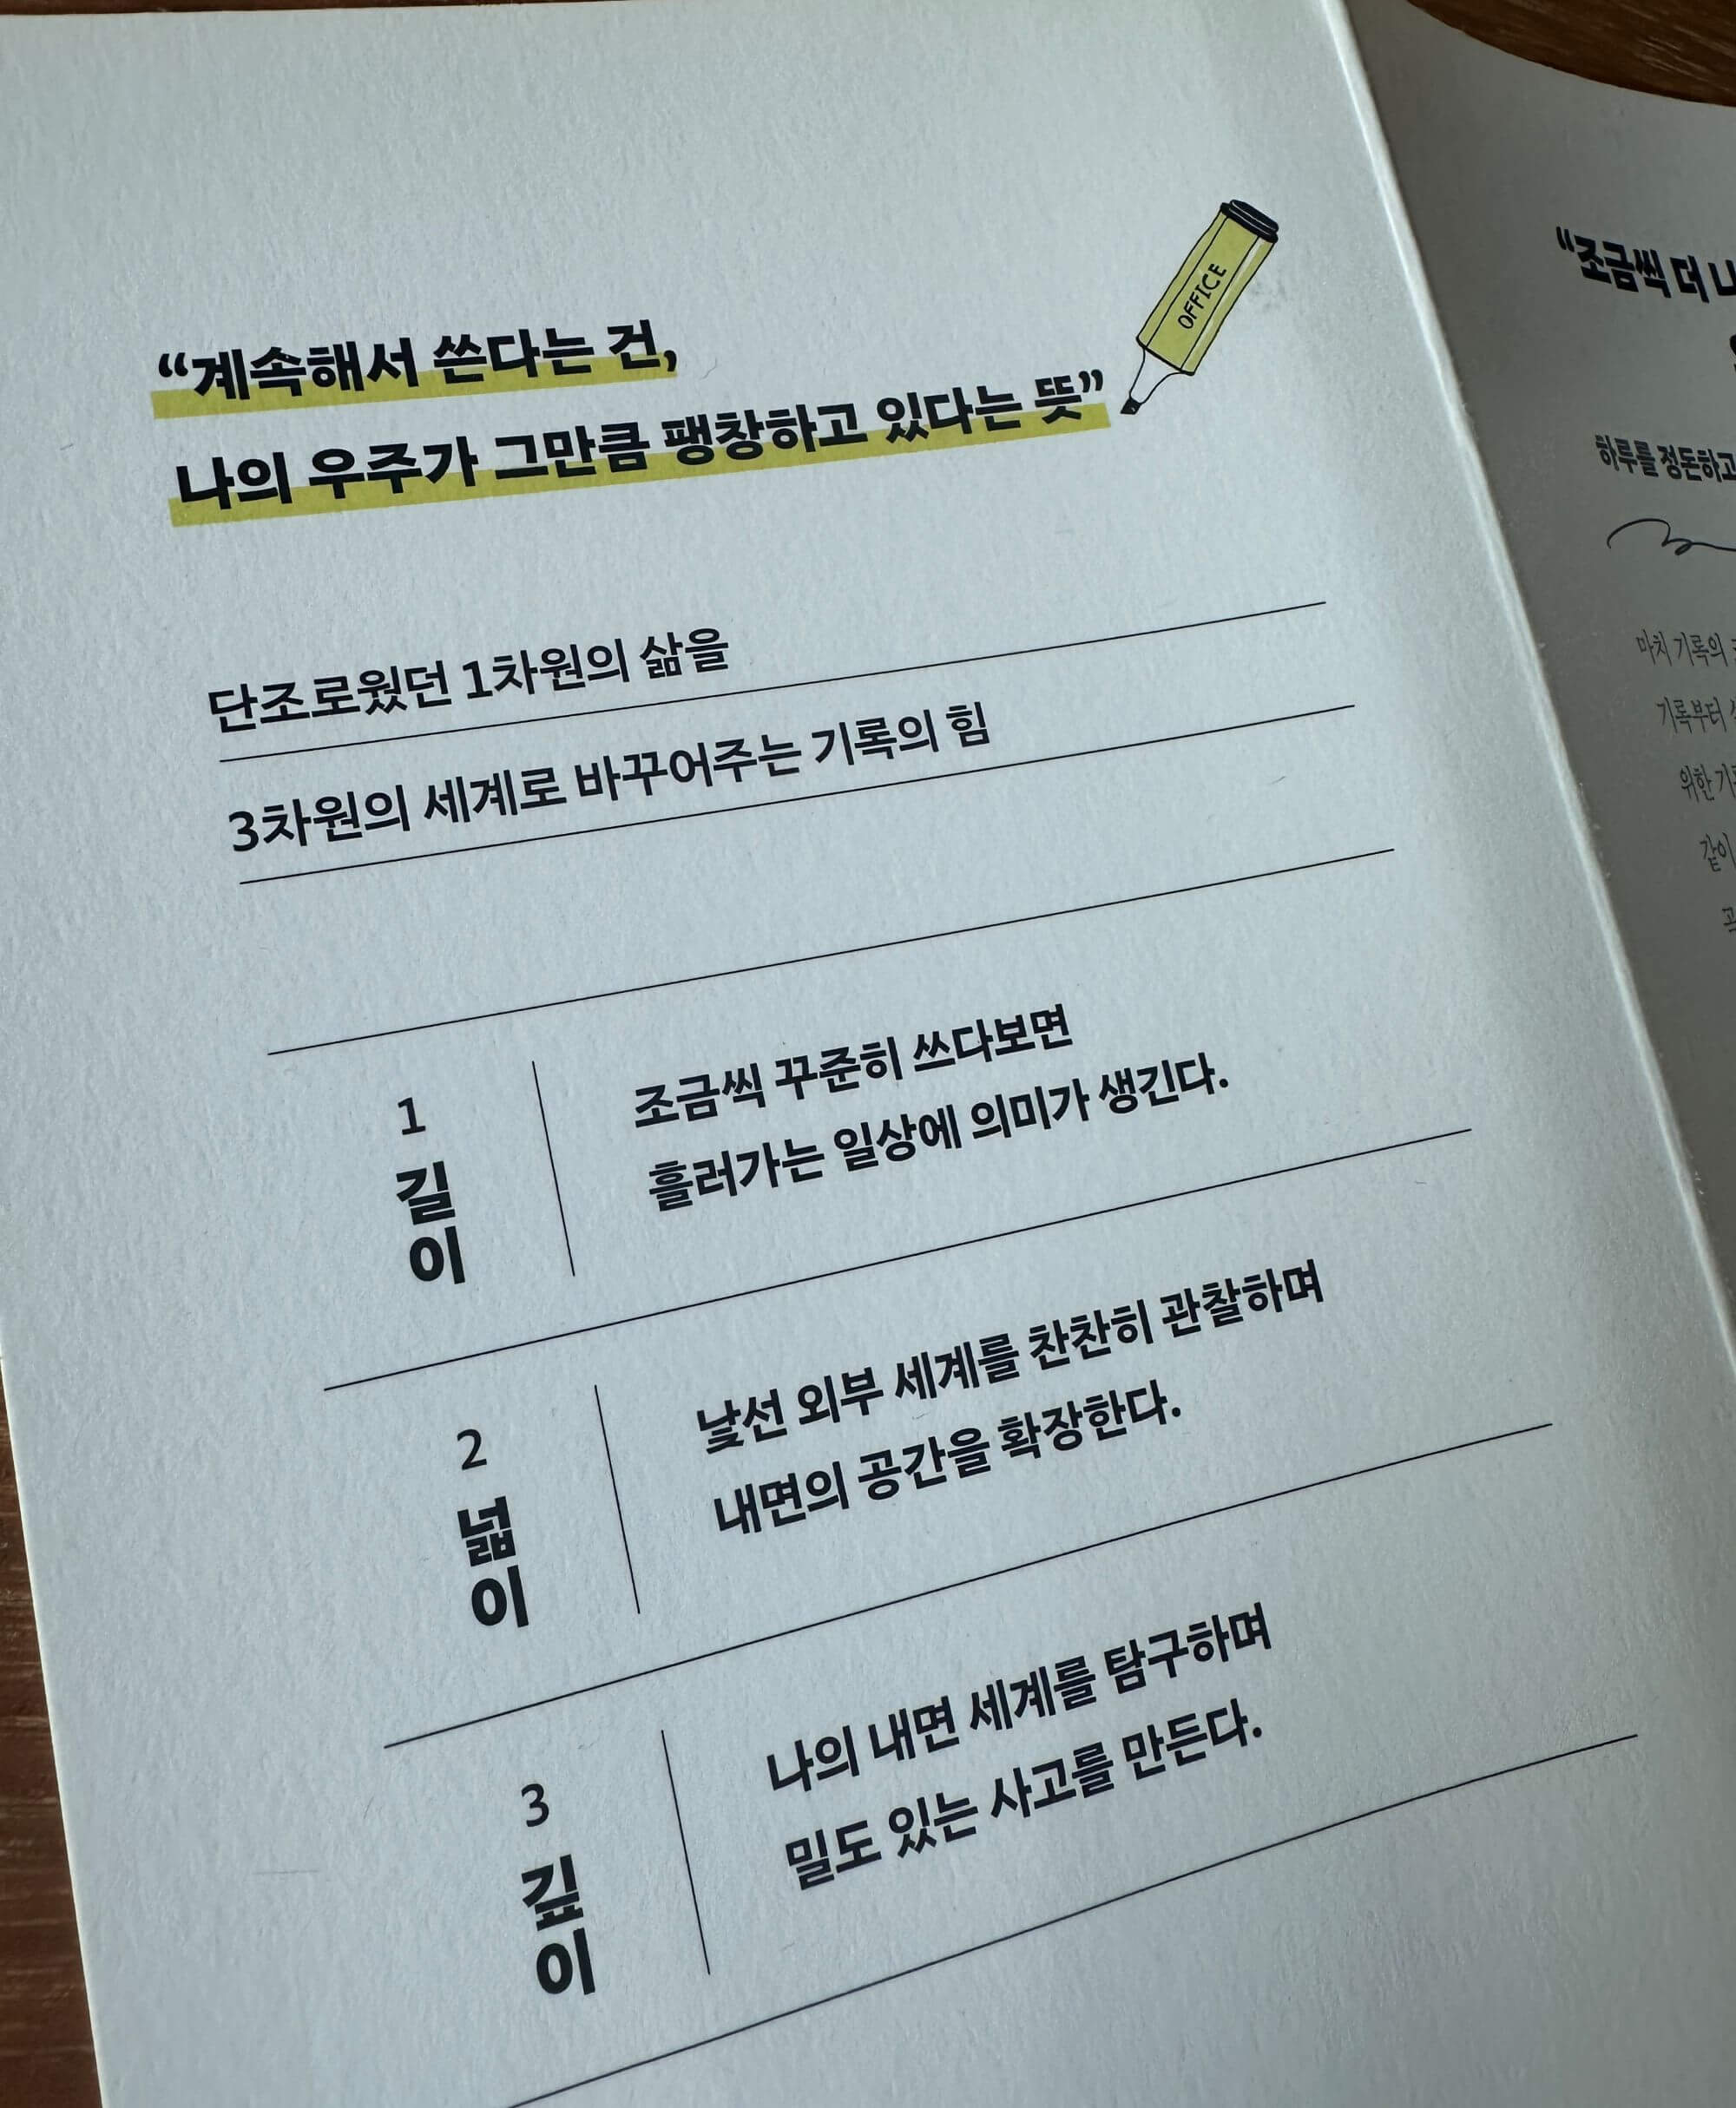 “계속해서 쓴다는 건,
나의 우주가 그만큼 팽창하고 있다는 뜻”
OFFICE
단조로웠던 1차원의 삶을
3차원의 세계로 바꾸어주는 기록의 힘
1
길이
조금씩 꾸준히 쓰다보면
흘러가는 일상에 의미가 생긴다.
2
넓이
낯선 외부 세계를 찬찬히 관찰하며
내면의 공간을 확장한다.
3
깊이
나의 내면 세계를 탐구하며
밀도 있는 사고를 만든다.
“조금씩 더 나
하루를 정돈하고
마치 기록의
기록부터
위한
같이